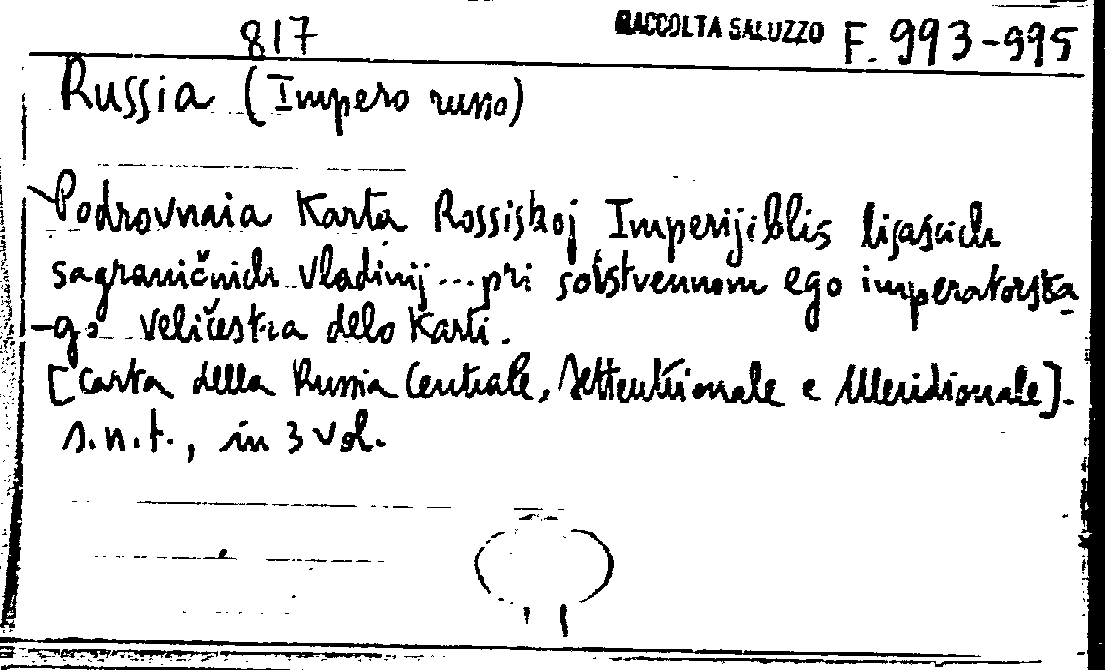 817 RACCOLTA SALUZZO F. 993-995
Russia (Impero russo)
Podrovnaia Karta Rossiskoj Imperijiblis lijascich
sagraničnich vladinij ... pri sobstvennom ego imperatorska
-go veličestra delo Karti.
[Carta della Russia Centrale, Settentrionale e Meridionale].
s.n.t., in 3 vol.